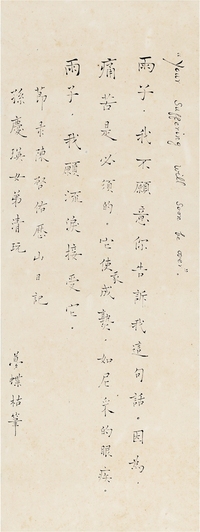 "Your suffering will soon be over".
雨子,我不願意你告訴我這句話。因為,
痛苦是必須的。它使我成熟。如尼采的眼疾。
雨子,我願流淚接受它。
節录陳啓佑歷山日記
孫慶瑛女弟清玩
夢蝶枯筆